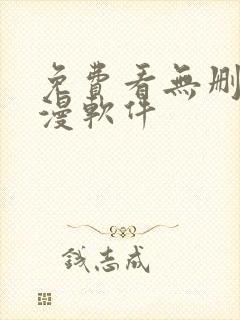 免費看無刪
漫軟件
钱志成